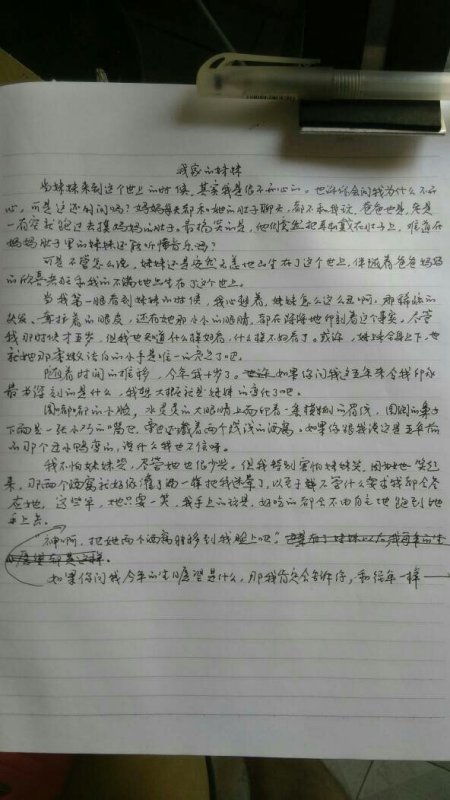 我家的妹妹
当妹妹来到这个世上的时候，其实我是很不开心的。也许你会问我为什么不开
心，可是这还用问吗？妈妈每天都和她的肚子聊天，都不和我说，爸爸也是，老是
一有空就跑过去摸妈妈的肚子。最搞笑的是，他们竟然把耳机戴在肚子上，难道在
妈妈肚子里的妹妹还能听懂音乐吗？
可是不管怎么说，妹妹还是安然无恙地出生在了这个世上，伴随着爸爸妈妈
的欣喜若狂和我的不满地出生在了这个世上。
当我第一眼看到妹妹的时候，我心想着，妹妹怎么这么丑啊，那稀疏的
头发，耷拉着的眼皮，还有她那小小的眼睛，都在深深地印刻着这个事实。尽管
我那时候才五岁，但我也知道什么模好看，什么模不好看了。或许，妹妹全身上下，也
就她那李嫩洁白的小手是唯一的亮点了吧。
随着时间的推移，今年我十岁了。如果你问我这五年来令我印象
最为深刻的是什么，我想大概就是妹妹的变化了吧。
圆嘟嘟的小脸，水灵灵的大眼睛上面印着一条模糊的眉线，圆圆的鼻子
下面是一张小巧的嘴巴，旁边还藏着两个浅浅的酒窝。如果你跟我说这是五年前
的那个丑小鸭变的，说什么我也不信呀。
我不怕妹妹哭，尽管她也很少哭。但我特别害怕妹妹笑，因为她一笑起
来，那两个酒窝就好像灌了酒一样把我迷晕了，以至于无论什么需求我都会答
应她，这些年，她只要一笑，我手上的玩具，好吃的都会不由自主地跑到她
手上去。
神啊，把她两个酒窝转移到我脸上吧！
如果你问我今年的生日愿望是什么，那我肯定会告诉你，和往年一样——